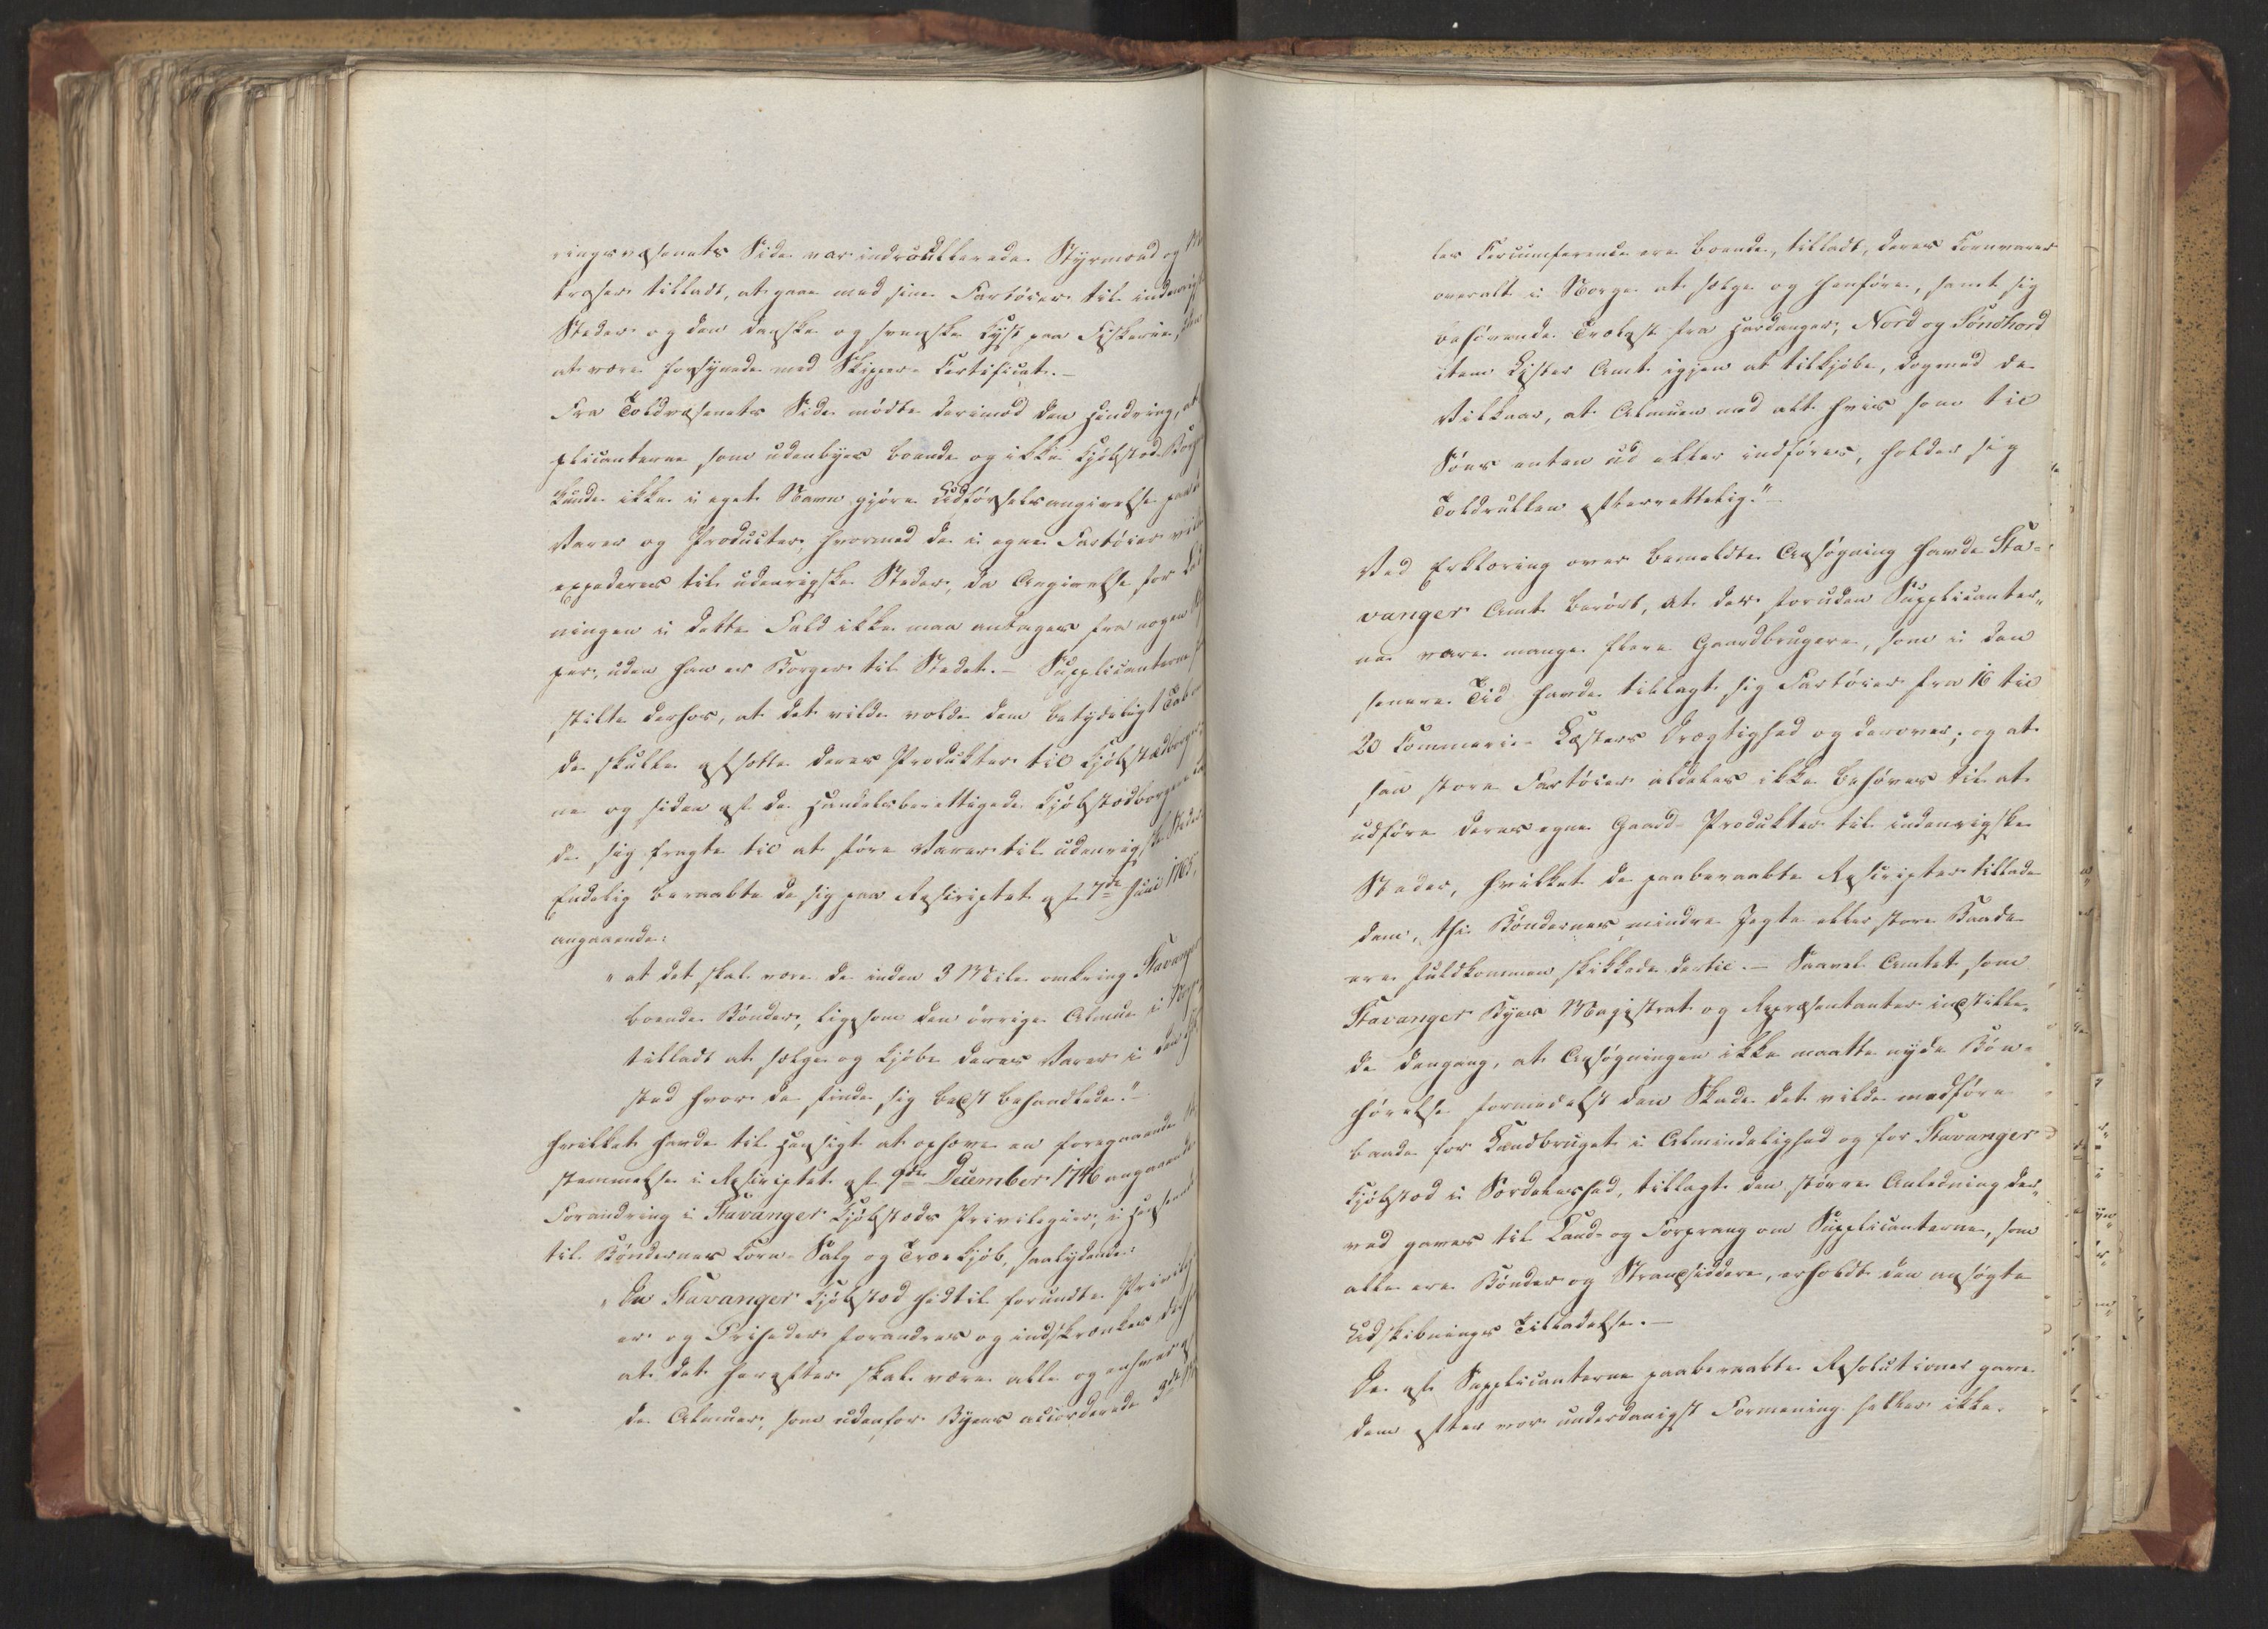 ringsvæsenets Side var indroullerede Styrmænd og Ma
troser tilladt, at gaae med sine Fartöier til indenrigs
Steder og den danske og svenske Kyst paa Fiskerie,
at være forsynede med Skipper-Certificat.-
Fra Toldvæsenets Side mödte derimod den Hindring, at
plicanterne som udenbyes boende og ikke Kjöbstad-Borg
kunde ikke i eget Navn gjöre Udförselsangivelse paa de
Varer og Producter, hvormed de i egne Fartöier vil
expederes til udenrigske Steder, da Angivelse for Lad
ningen i dette Fald ikke maa antages fra nogen
per, uden han er Borger til Stedet.- Supplicanterne
stilte derhos, at det vilde volde dem betydeligt Tab
de skulle afsætte deres Produkter til Kjöbstadborger
ne og siden af de handelsberettigede Kjöbstadborgere
de sig fragte til at före Varer til udenrigske Steder
Endelig beraabte de sig paa Rescriptet af 7de Juni 1765,
angaaende:
"at det skal være de inden 3 Mile omkring Stavanger
boende Bönder, ligesom den övrige Almue i Norge
tilladt at sælge og kjöbe deres Varer i den Kjöb
stad hvor de finde sig bedst behandlede."-
hvilket havde til Hensigt at ophæve en foregaaende
stemmelse i Rescriptet af 9de December 1746 angaaende
Forandring i Stavanger Kjöbstads Privilegier, i Henseende
til Böndernes Korn-Salg og Træe kjöb, saalydende:
"De Stavanger Kjöbstad hidtil forundte Privilegi
er og Friheder forandres og indskrænkes
at det herefter skal være alle og enhver af
de Almuer, som udenfor Byens accorderede 3de
les Circumference ere boende, tilladt, deres Kornvarer
overalt i Norge at sælge og henföre, samt sig
behövende Trælast fra Hardanger, Nord og Söndhord
item Lister Amt igjen at tilkjöbe, dog med de
Vilkaar, at Almuen med alt hvis som til
Söes enten ud eller indföres, holder sig
Toldrullen efterrettelig."-
Ved Erklæring over bemeldte Ansögning havde Sta-
vanger Amt berört, at der foruden Supplicanter-
ne vare mange flere Gaardbrugere, som i den
senere Tid havde tillagt sig Fartöier fra 16 til
20 Commerce-Læsters Drægtighed og derover; og at
saa store Fartöier aldeles ikke behöves til at
udföre deres egne Gaard-Produkter til indenrigske
Steder, hvilket de paaberaabte Rescripter tillade
dem, thi Böndernes mindre Jegte eller store Baade
ere fuldkommen skikkede dertil.- Saavel Amtet som
Stavanger Byes Magistrat og Repræsentanter indstille-
de dengang, at Ansögningen ikke maatte nyde Bön-
hörelse formedelst den Skade det vilde medföre
baade for Landbruget i Almindelighed og for Stavanger
Kjöbstad i Særdeleshed, tillagt den större Anledning der-
ved gaves til Land- og Forprang om Supplicanterne, som
alle ere Bönder og Strandsiddere, erholdt den ansögte
Udskibnings Tilladelse.-
De af Supplicanterne paaberaabte Resolutioner gave
dem efter vor underdanigst Formening heller ikke